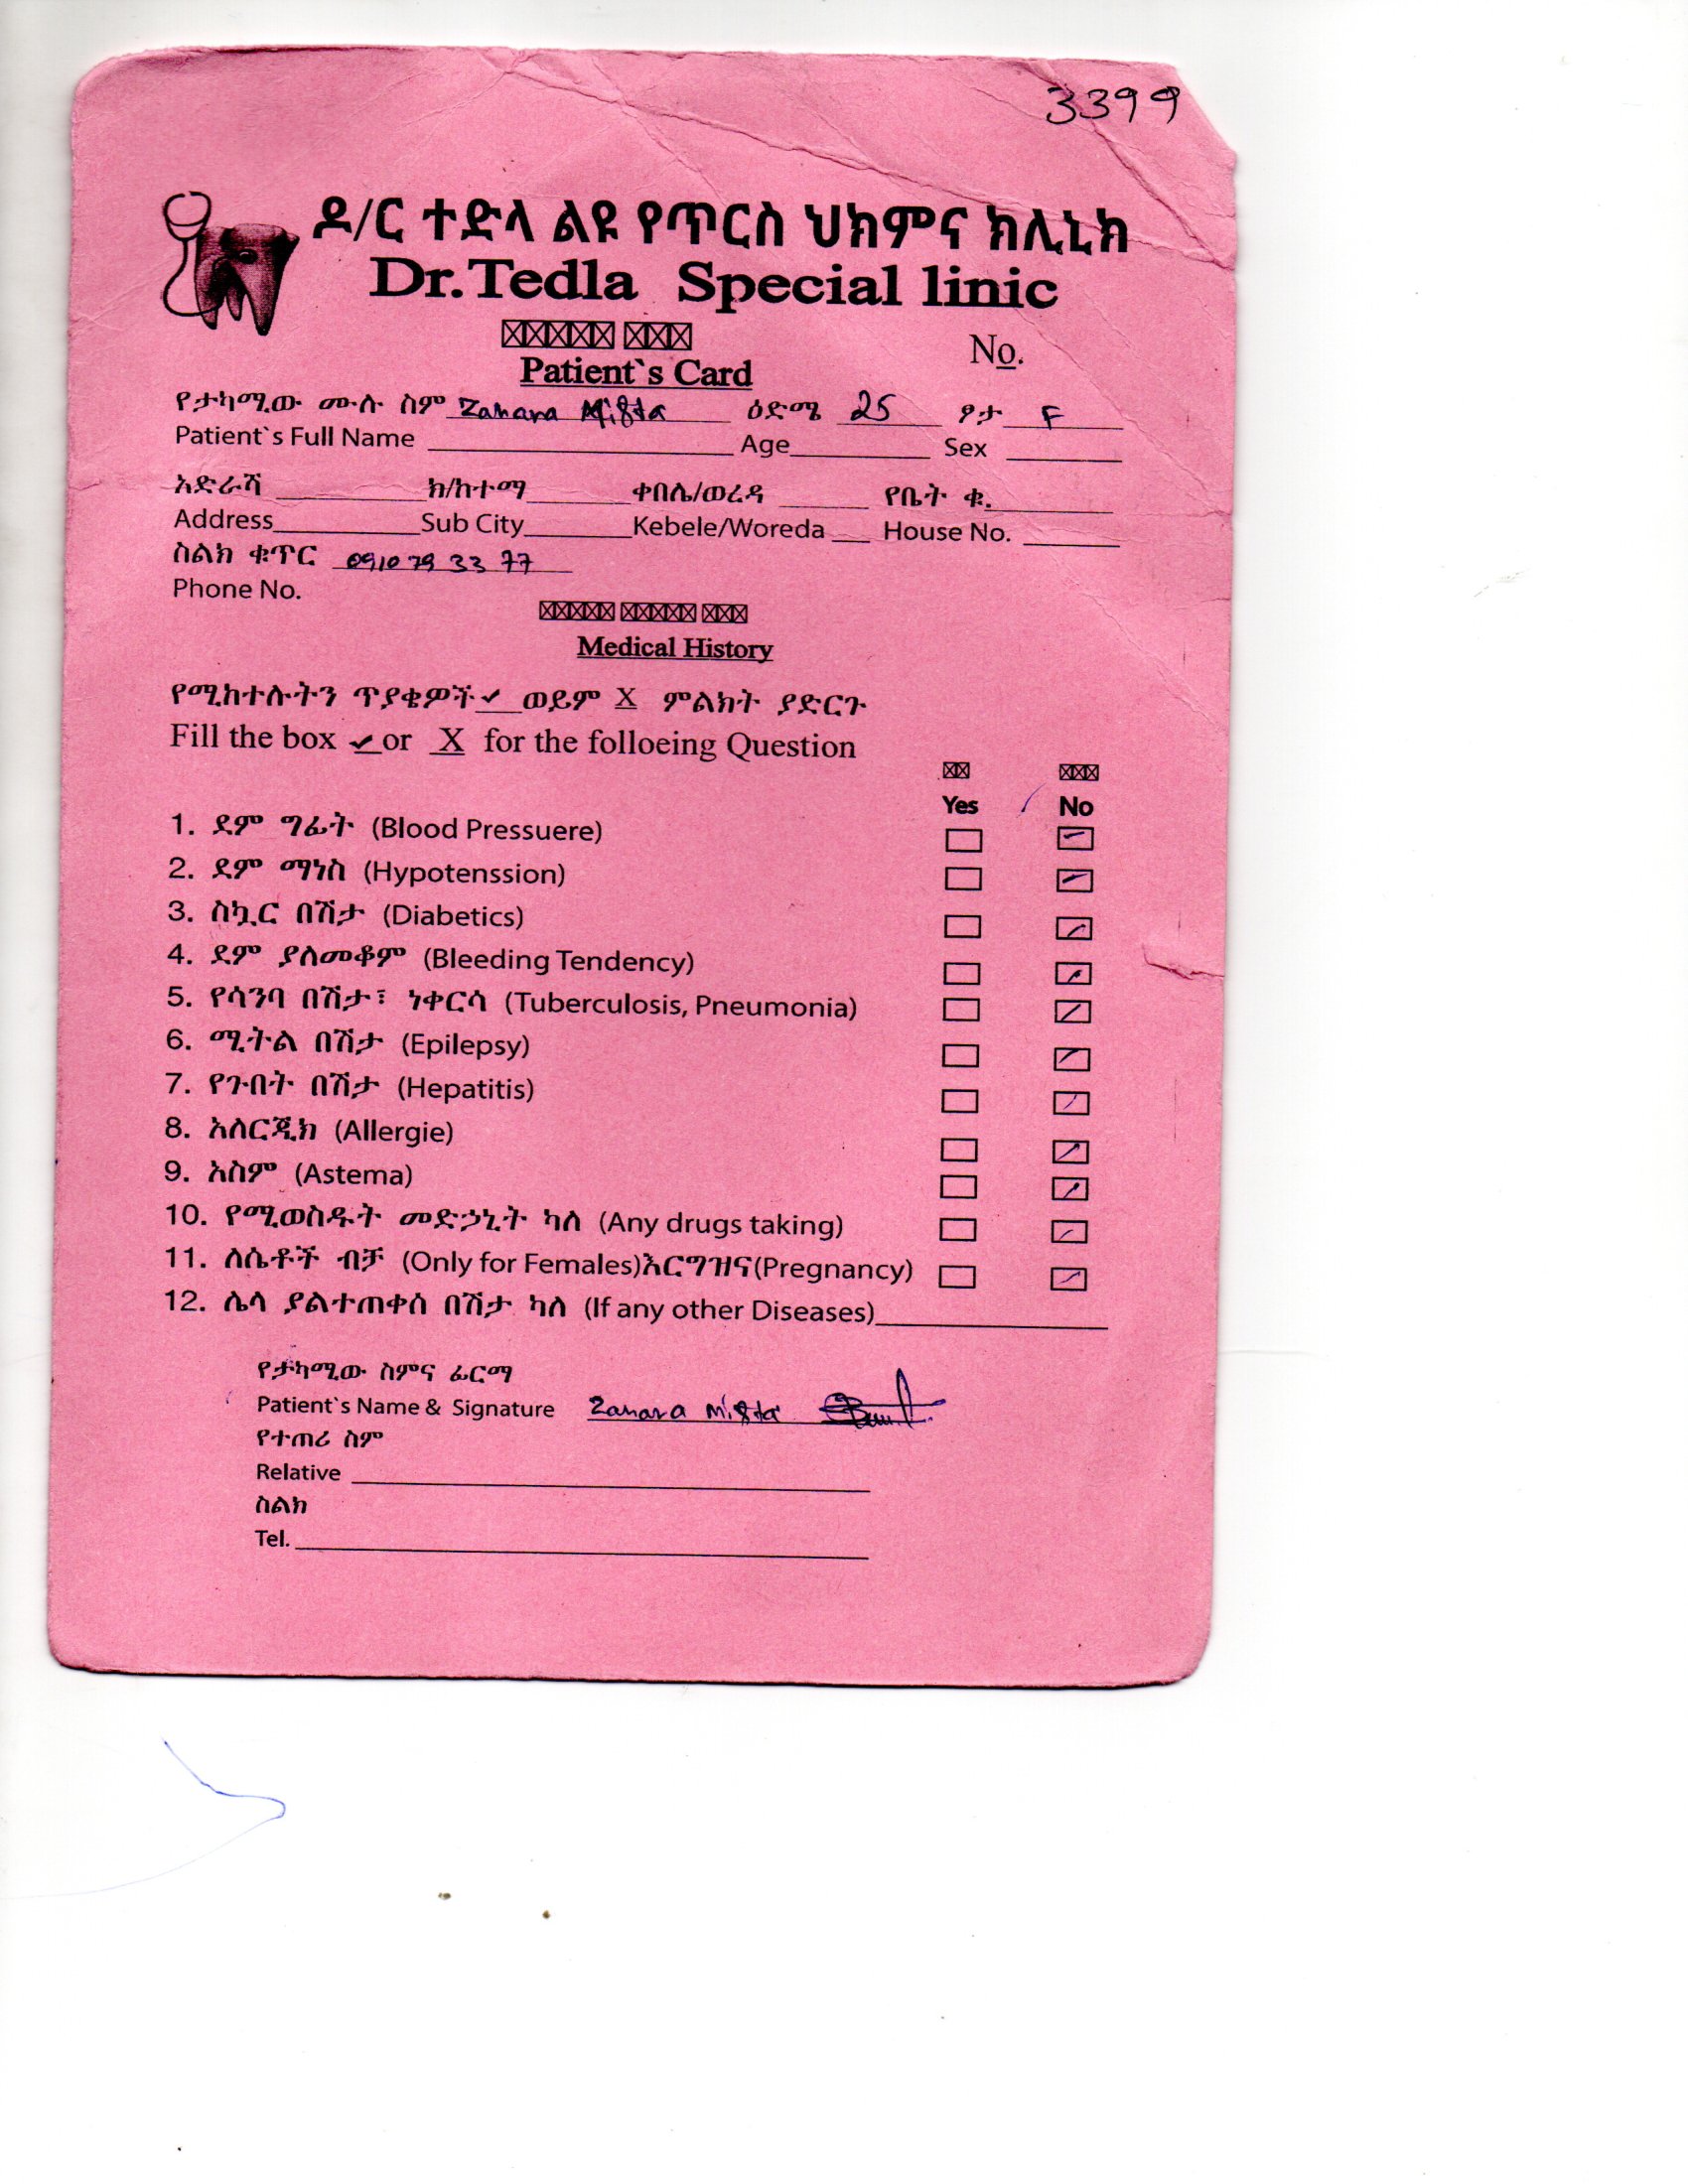 3399
ዶ/ር ተድላ ልዩ የጥርስ ህክምና ክሊኒክ
Dr.Tedla Special linic
No.
Patient`s Card
የታካሚው ሙሉ ስም Zahara ዕድሜ 25 ፆታ F
Patient`s Full Name Age Sex
አድራሻ ክ/ከተማ ቀበሌ/ወረዳ የቤት ቁ.
Address Sub City Kebele/Woreda House No.
ስልክ ቁጥር 0910 79 33 77
Phone No.
Medical History
የሚከተሉትን ጥያቄዎች ✓ ወይም X ምልክት ያድርጉ
Fill the box ✓ or X for the folloeing Question
Yes No
1. ደም ግፊት (Blood Pressuere)
2. ደም ማነስ (Hypotenssion)
3. ስኳር በሽታ (Diabetics)
4. ደም ያለመቆም (Bleeding Tendency)
5. የሳንባ በሽታ፣ ነቀርሳ (Tuberculosis, Pneumonia)
6. ሚትል በሽታ (Epilepsy)
7. የጉበት በሽታ (Hepatitis)
8. አለርጂክ (Allergie)
9. አስም (Astema)
10. የሚወስዱት መድኃኒት ካለ (Any drugs taking)
11. ለሴቶች ብቻ (Only for Females)እርግዝና(Pregnancy)
12. ሌላ ያልተጠቀሰ በሽታ ካለ (If any other Diseases)
የታካሚው ስምና ፊርማ
Patient`s Name & Signature Zahara
የተጠሪ ስም
Relative
ስልክ
Tel.